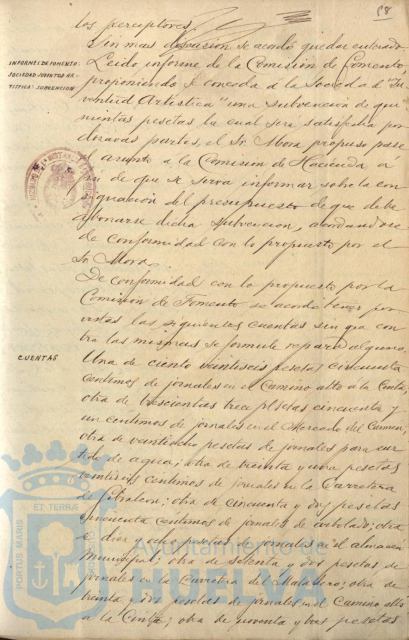 98
los perceptores.
Sin mas discusion se acordó quedar enterado.
INFORMES DE FOMENTO:
SOCIEDAD JUVENTUD AR-
TISTICA: SUBVENCION
Leido informe de la Comision de Fomento
proponiendo se conceda a la Sociedad "Ju-
ventud Artistica" una subvencion de qui-
nientas pesetas la cual será satisfecha por
dozavas partes, el Sr. Mora propuso pase
el asunto a la Comision de Hacienda á
fin de que se sirva informar sobre la con-
signacion del presupuesto de que debe
abonarse dicha subvencion, acordandose
de conformidad con lo propuesto por el
Sr. Mora.
De conformidad con lo propuesto por la
Comision de Fomento se acordó tener por
vistas las siguientes cuentas sin que con-
tra las mismas se formule reparo alguno.
CUENTAS
Una de ciento veintiseis pesetas cincuenta
centimos de jornales en el Camino alto a la Cinta;
otra de trescientas trece pesetas cincuenta y
un centimos de jornales en el Mercado del Carmen;
otra de veintiocho pesetas de jornales para sur-
tido de agua; otra de treinta y una pesetas
veintiseis centimos de jornales en la Carretera
de Gibraleon; otra de cincuenta y dos pesetas
cincuenta centimos de jornales de arbolado; otra
de diez y ocho pesetas de jornales en el almacen
municipal; otra de setenta y dos pesetas de
jornales en la Carretera del Matadero; otra de
treinta y dos pesetas de jornales en el Camino alto
a la Cinta; otra de noventa y tres pesetas
PORTUS MARIS ET TERRAE
Ayuntamiento de
HUELVA